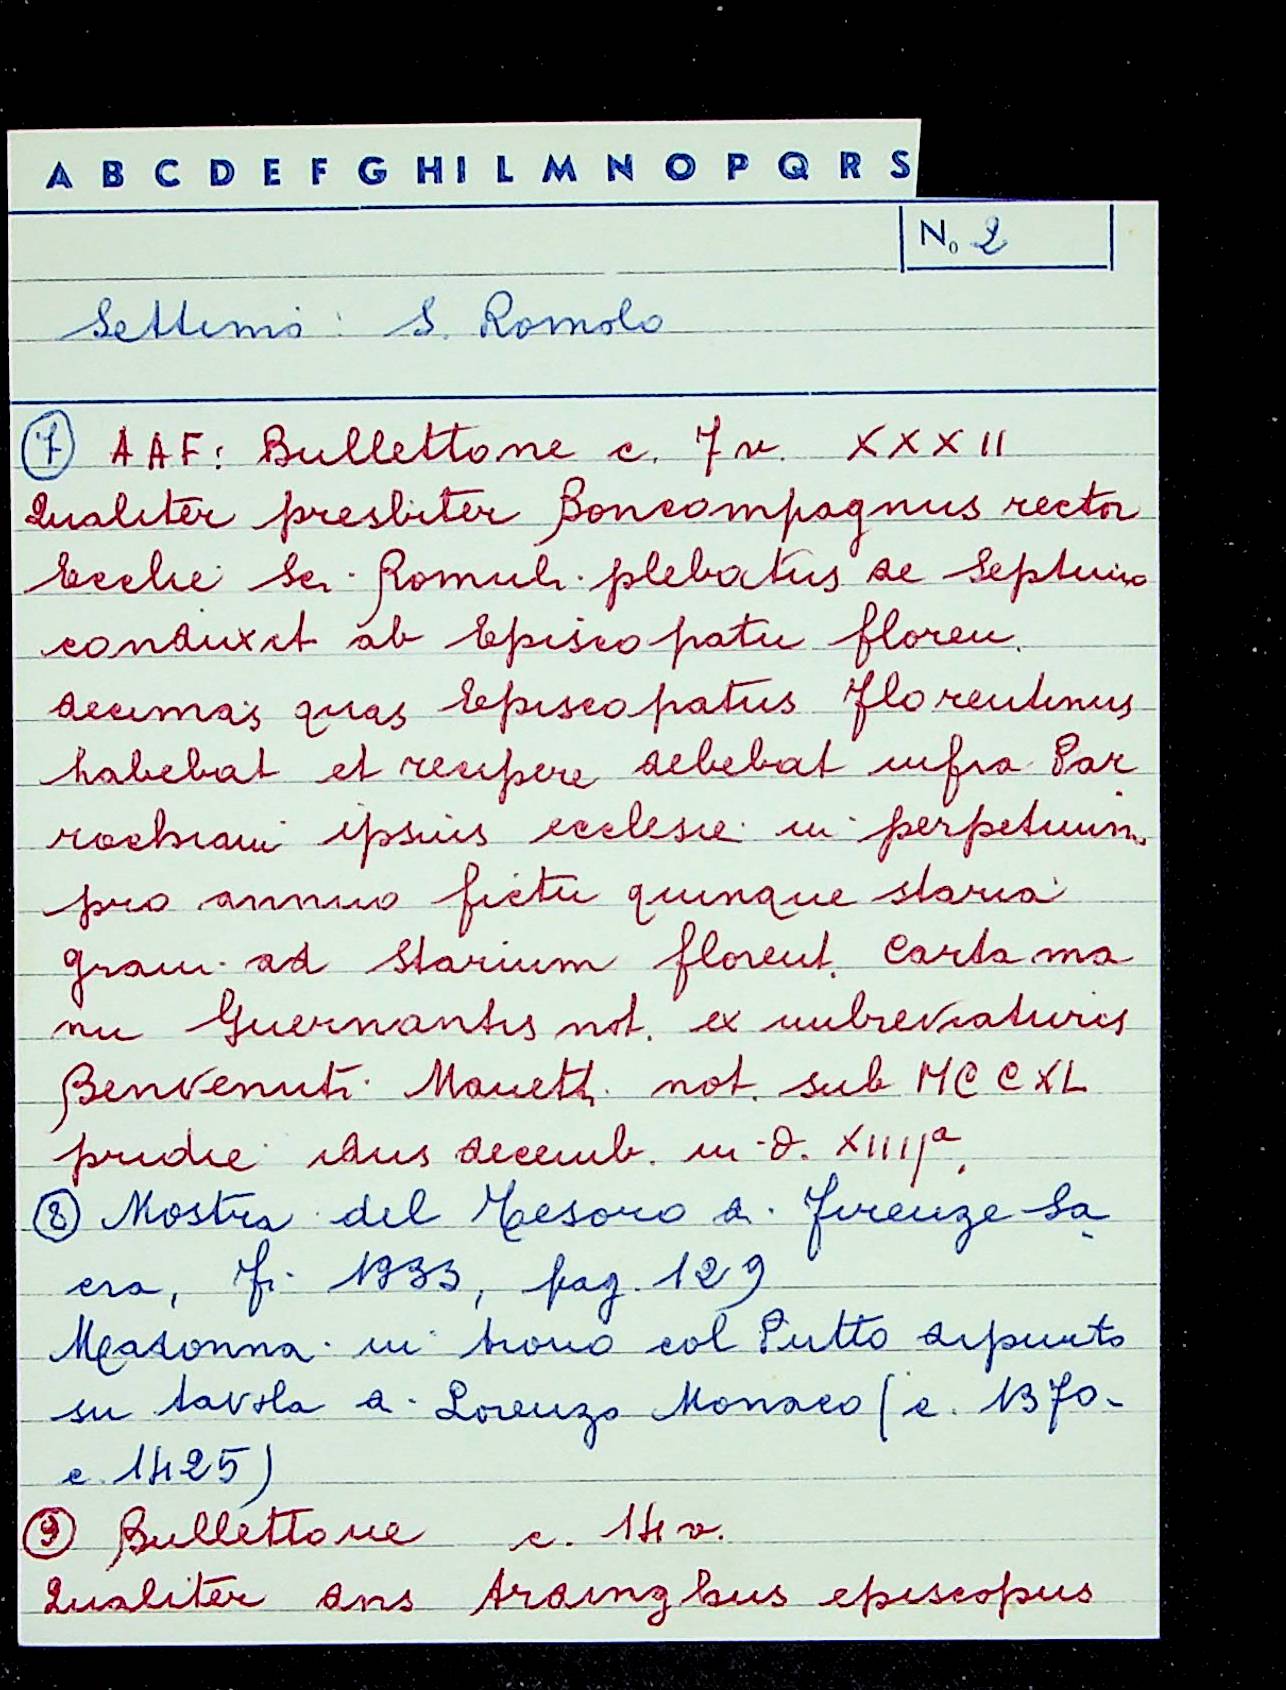 A B C D E F G H I L M N O P Q R S
No 2
Settimo: S. Romolo
7 AAF: Bullettone c. 7v. XXXII
Qualiter presbiter Boncompagnus rector
Ecclie Sci Romuli plebatus de Septimo
conduxit ab Episcopatu floren.
decimas quas Episcopatus Florentinus
habebat et recipere debebat infra Par
rochiam ipsius ecclesie in perpetuum
pro annuo fictu quinque staria
grani ad starium florent. Carta ma
nu Guernantis not. ex imbreviaturis
Benvenuti Manetti not. sub MCCXL
pridie idus decemb. in d. XIIIIª.
8 Mostra del Tesoro di Firenze Sa
cra, Fi. 1933, pag. 129
Madonna in trono col Putto dipinto
su tavola di Lorenzo Monaco (c. 1370-
c. 1425)
9 Bullettone c. 14v.
Qualiter dns Ardinghus episcopus